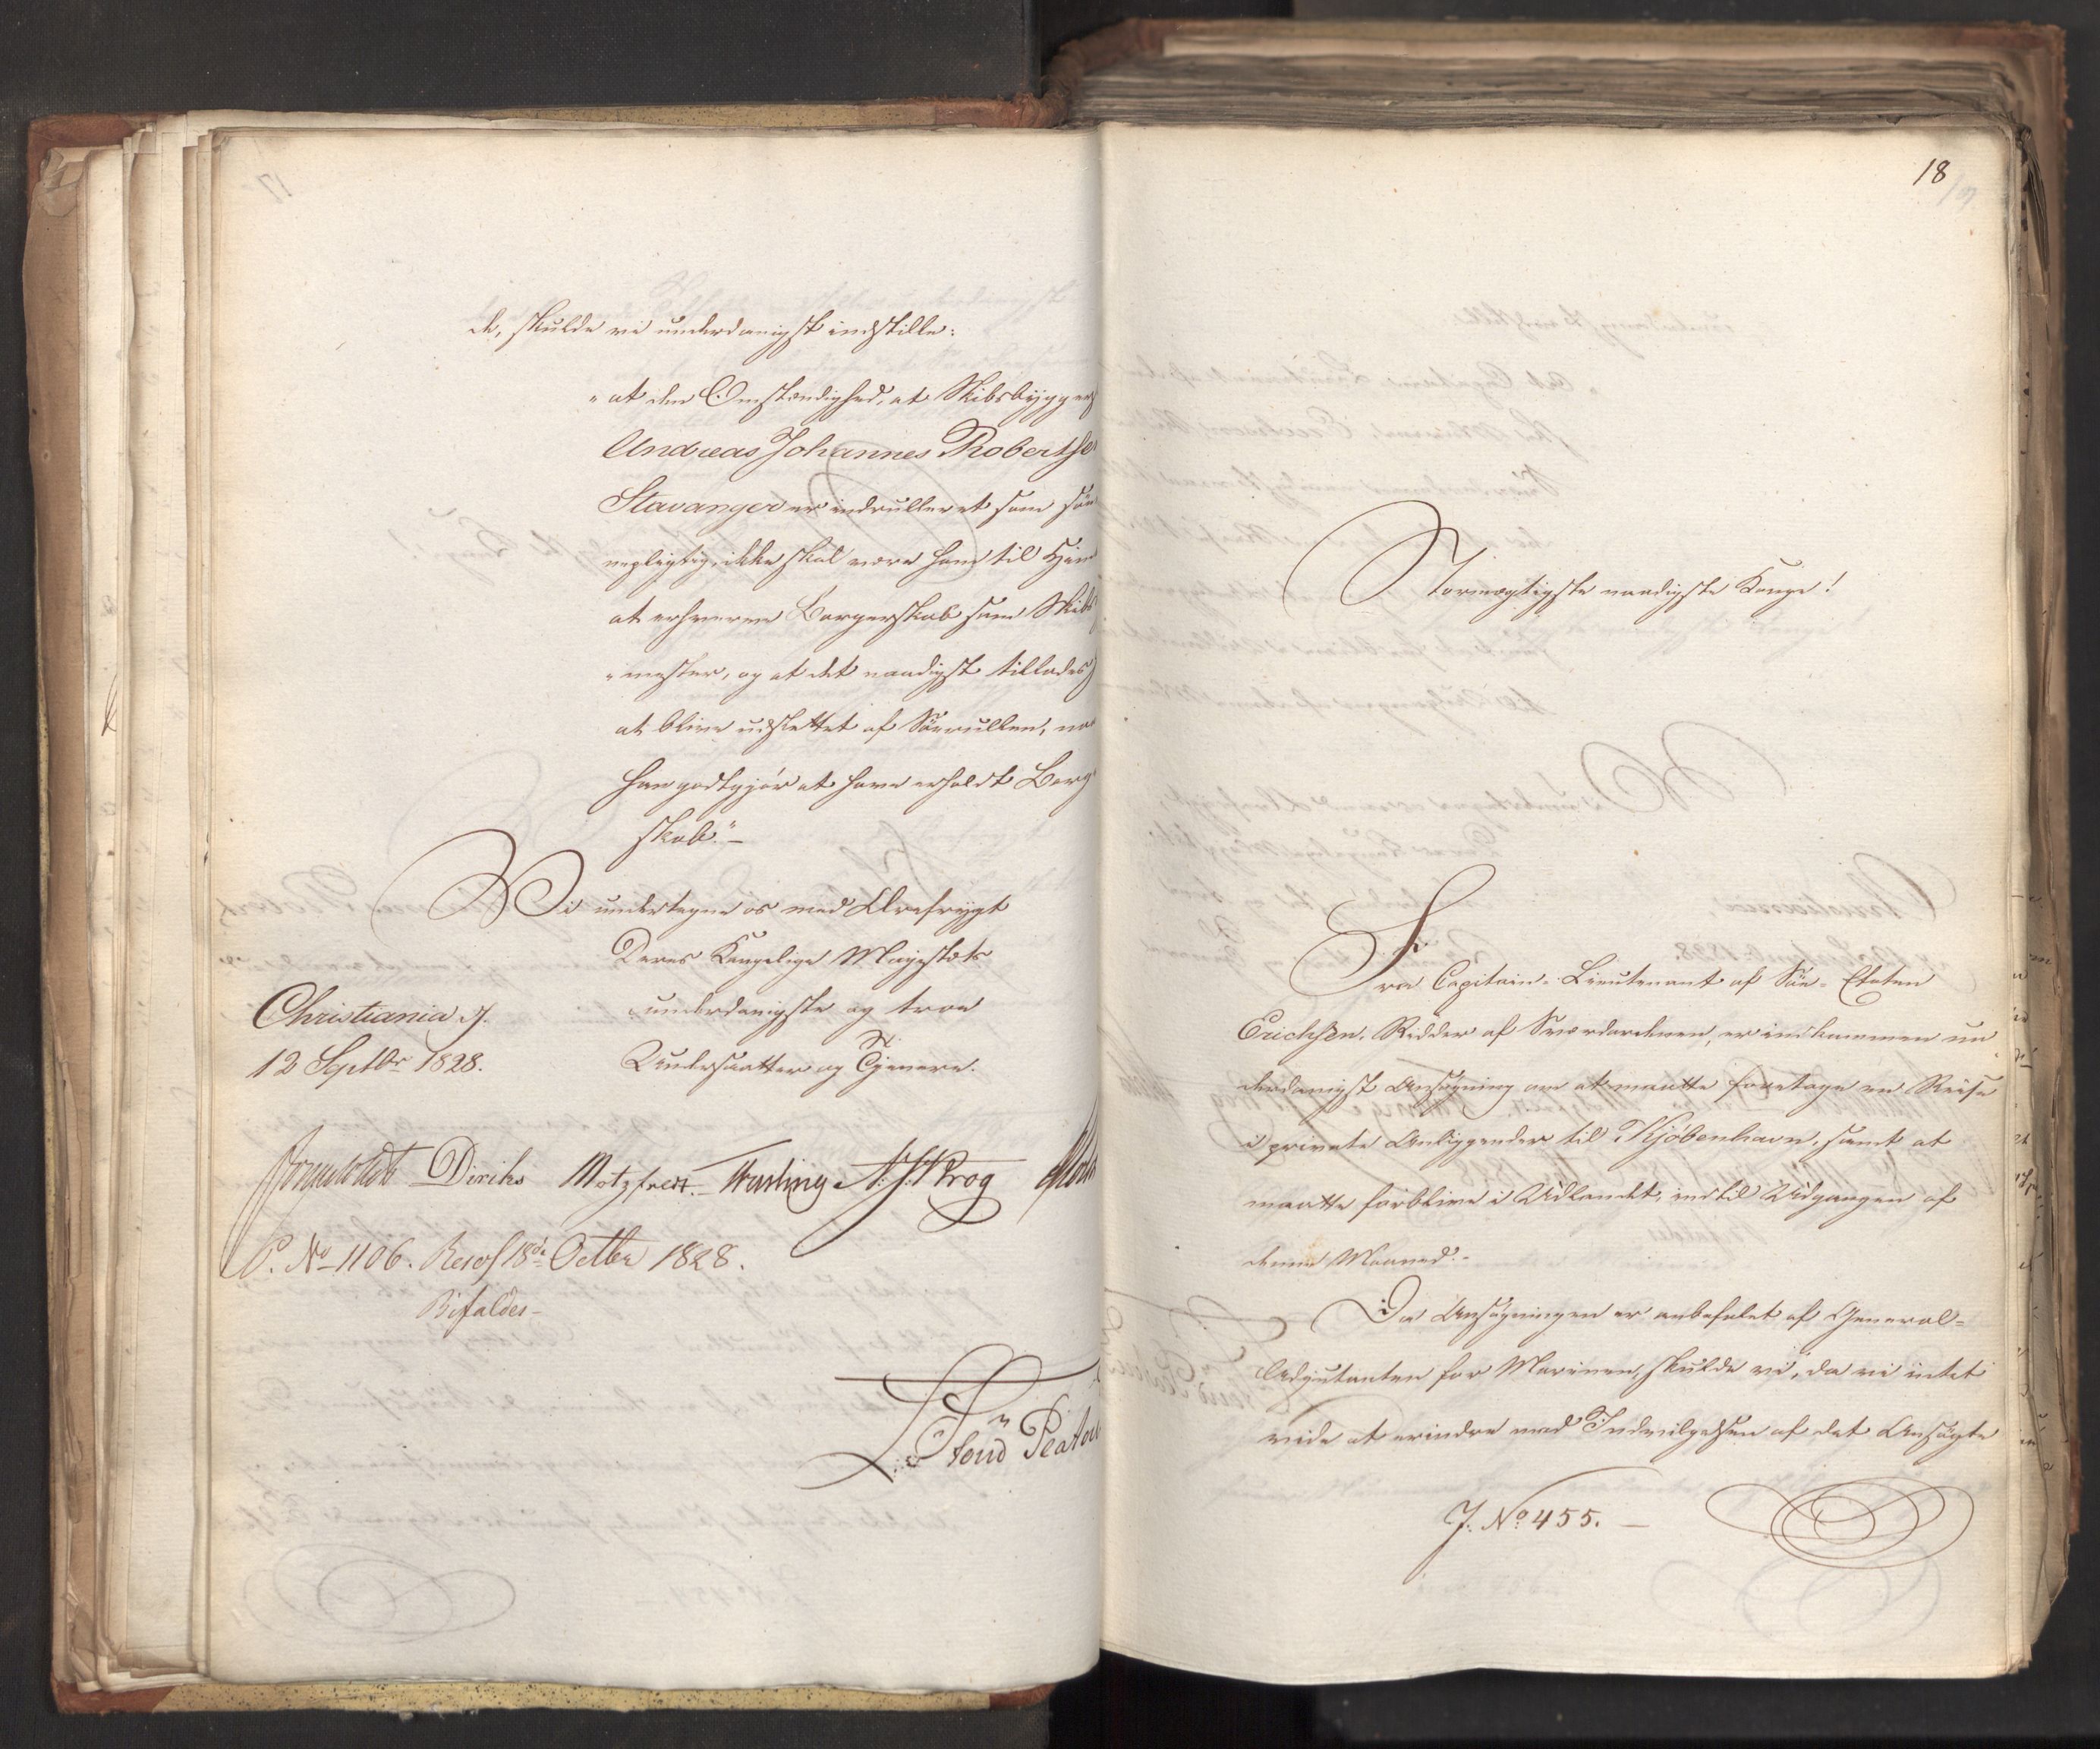 de, skulde vi underdanigst indstille:
"at den Omstændighed, at Skibsbygger
Andreas Johannes Robertse
Stavanger er indrulleret som söe
nepligtig, ikke skal være ham til Hin
at erhverve Borgerskab som Skibs
"mester, og at det naadigst tillades
at blive udslettet af Söerullen, na
han godtgjör at have erholdt Borg
skab."-
Vi undertegne os med Ærefrygt
Deres Kongelige Majestæts
underdanigste og troe
Christiania d.
12 Septbr 1828.
Undersaatter og Tjenere.
Diriks Motzfeldt. N. J. Krog
P. No 1106. Resol 18de Octbr 1828.
Bifaldes-
18
Stormægtigste naadigste Konge!
Fra Capitain-Lieutenant af Söe-Etaten
Erichsen, Ridder af Sværdordenen, er indkommen un
derdanigst Ansögning om at maatte foretage en Reise
i private Anliggender til Kjöbenhavn, samt at
maatte forblive i Udlandet, indtil Udgangen af
denne Maaned.-
Da Ansögningen er anbefalet af General-
Adjutanten for Marinen, skulde vi, da vi intet
vide at erindre mod Indvilgelsen af det Ansögte
J. No 455. -